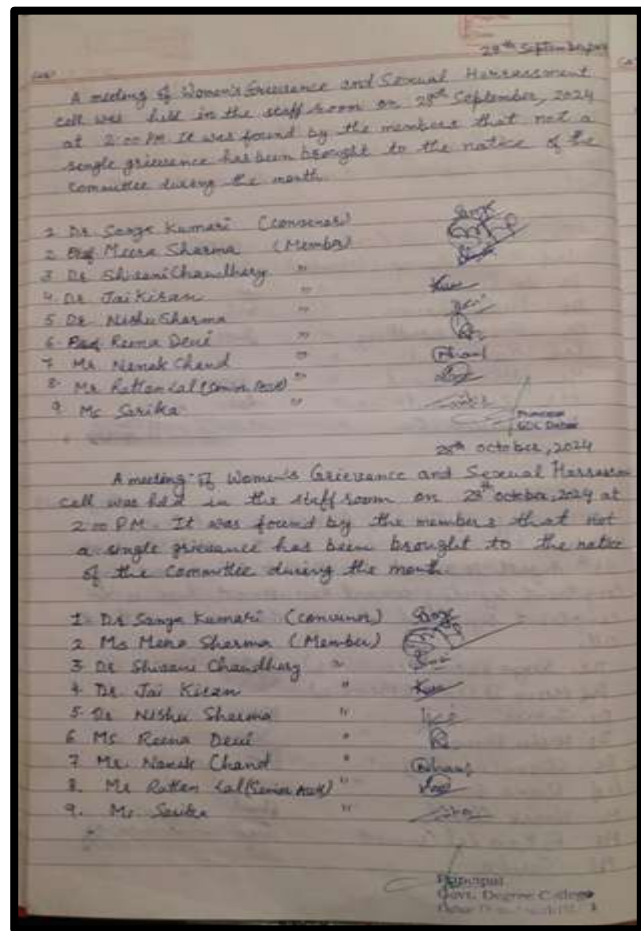 28th September, 2024
A meeting of Women's Grievance and Sexual Harrassment
cell was held in the staff room on 28th September, 2024
at 2:00 PM It was found by the members that not a
single grievance has been brought to the notice of the
Committee during the month.
1 Dr Sanju Kumari (Convenor)
2 Prof Meera Sharma (Member)
3 Dr Shivani Chaudhary "
4. Dr Jai Kiran "
5 Dr. Nishu Sharma "
6. Prof Reena Devi "
7 Mr Nanak Chand "
8. Mr Rattan Lal (Senior Asstt) "
9. Ms Sarika "
Principal
28th October, 2024
A meeting of Women's Grievance and Sexual Harrassm
cell was held in the staff room on 28th October, 2024 at
2:00 PM. It was found by the members that not
a single grievance has been brought to the notice
of the Committee during the month
1. Dr Sanju Kumari (Convenor)
2 Ms Meera Sharma (Member)
3 Dr Shivani Chaudhary "
4. Dr. Jai Kiran "
5. Dr Nishu Sharma "
6 Ms Reena Devi "
7 Mr. Nanak Chand "
8. Mr Rattan Lal (Senior Asstt) "
9. Ms Sarika "
Principal
Govt. Degree College